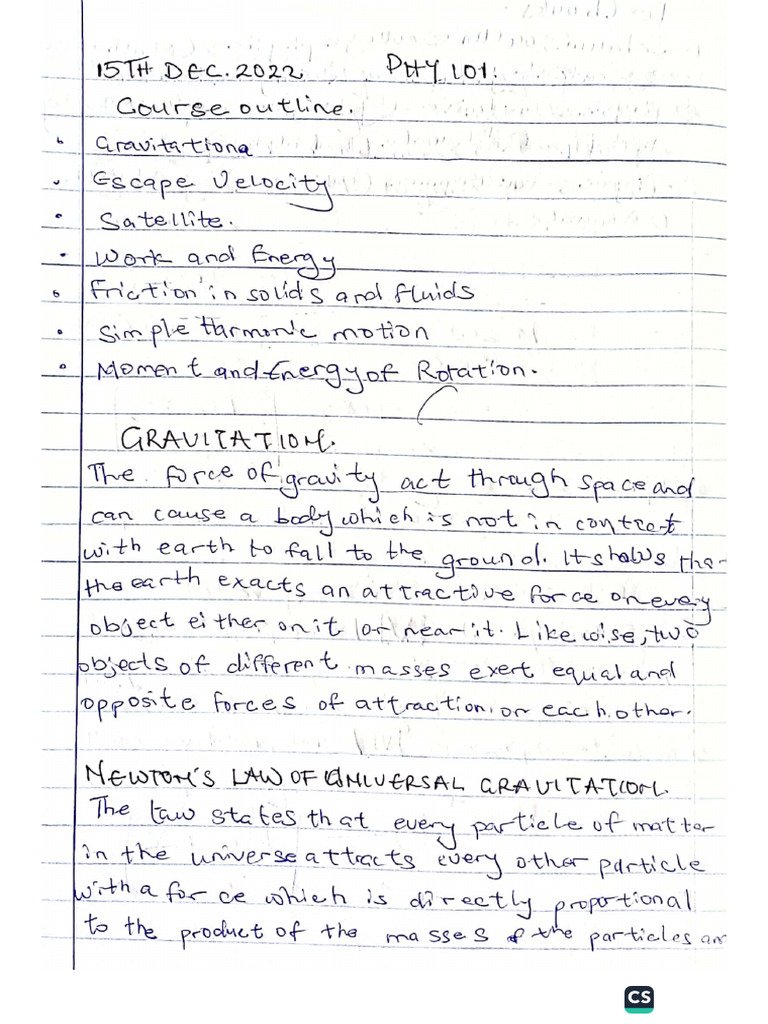 15TH DEC. 2022 PHY 101.
Course outline.
Gravitationa
Escape Velocity
Satellite.
Work and Energy
Friction in solids and fluids
Simple Harmonic motion
Moment and Energy of Rotation.
GRAVITATION.
The force of gravity act through space and
can cause a body which is not in contract
with earth to fall to the ground. It shows tha-
the earth exacts an attractive force on every
object either on it or near it. Likewise, two
objects of different masses exert equal and
opposite forces of attraction on each other.
NEWTON'S LAW OF UNIVERSAL GRAVITATION.
The law states that every particle of matter
in the universe attracts every other particle
with a force which is directly proportional
to the product of the masses of the particles an
CS